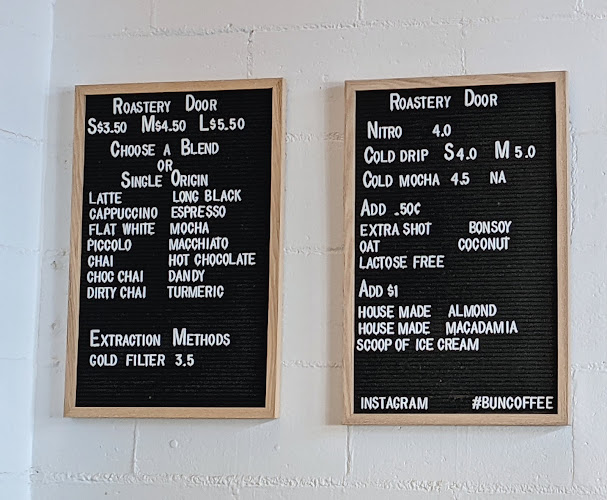 ROASTERY DOOR
S$3.50 M$4.50 L$5.50
CHOOSE A BLEND
OR
SINGLE ORIGIN
LATTE LONG BLACK
CAPPUCCINO ESPRESSO
FLAT WHITE MOCHA
PICCOLO MACCHIATO
CHAI HOT CHOCOLATE
CHOC CHAI DANDY
DIRTY CHAI TURMERIC
EXTRACTION METHODS
COLD FILTER 3.5
ROASTERY DOOR
NITRO 4.0
COLD DRIP S 4.0 M 5.0
COLD MOCHA 4.5 NA
ADD .50¢
EXTRA SHOT BONSOY
OAT COCONUT
LACTOSE FREE
ADD $1
HOUSE MADE ALMOND
HOUSE MADE MACADAMIA
SCOOP OF ICE CREAM
INSTAGRAM #BUNCOFFEE